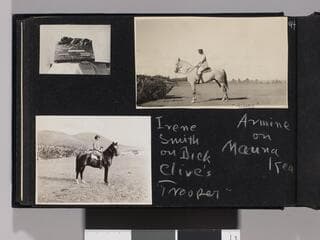 Irene
Smith
on Dick
Clive's
Trooper
Armine
on
Mauna
Kea